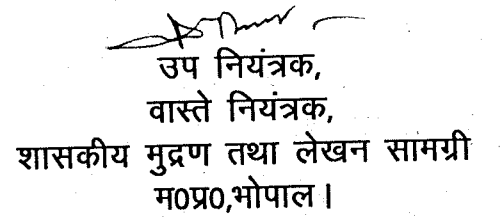 उप नियंत्रक,
वास्ते नियंत्रक,
शासकीय मुद्रण तथा लेखन सामग्री
म0प्र0,भोपाल।